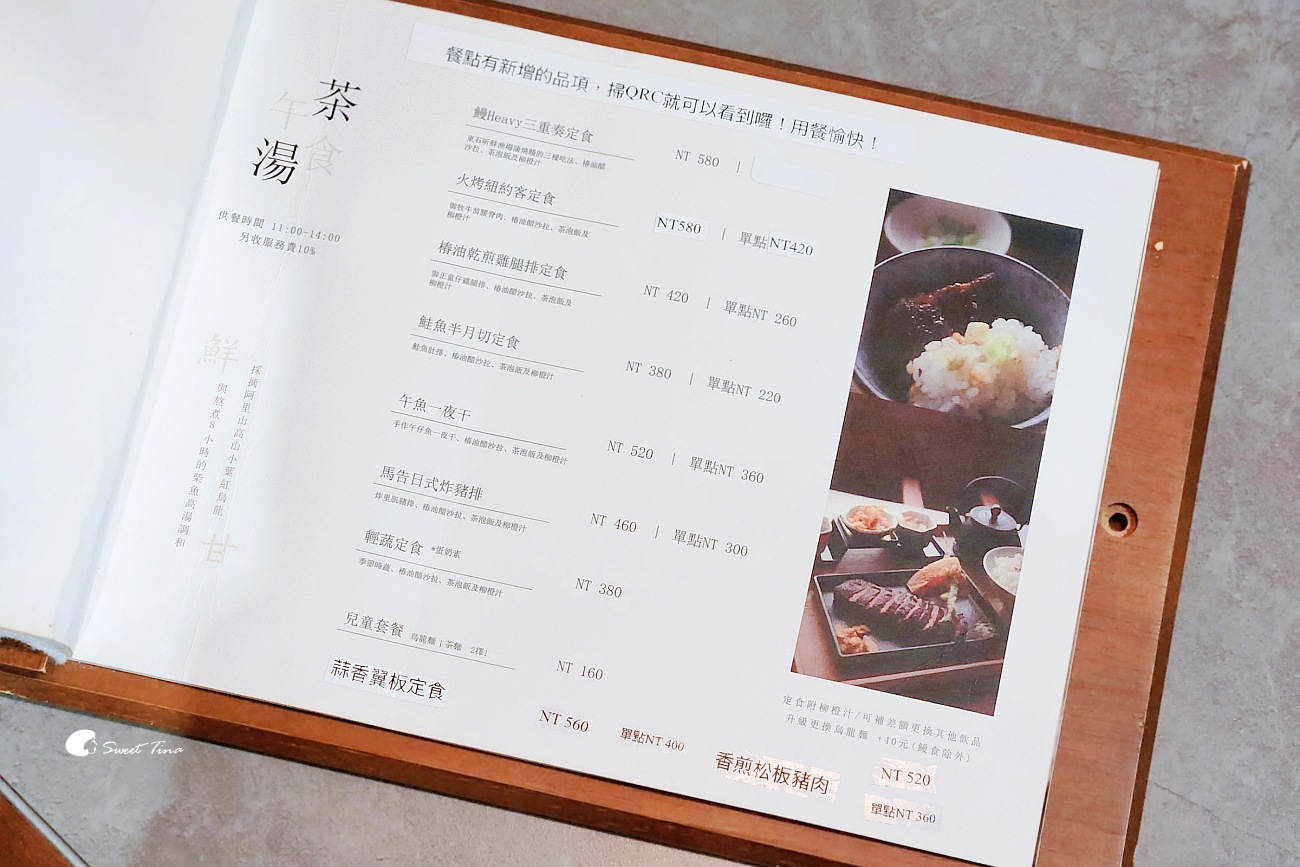 餐點有新增的品項，掃QRC就可以看到囉！用餐愉快！
茶湯
午食
供餐時間 11:00-14:00
另收服務費10%
鮮
甘
採摘阿里山高山小葉紅烏龍
與熬煮8小時的柴魚高湯調和
鰻Heavy三重奏定食
東石昕鮮漁場蒲燒鰻的三種吃法、椿油醋
沙拉、茶泡飯及柳橙汁
NT 580 |
火烤紐約客定食
御牧牛前腰脊肉、椿油醋沙拉、茶泡飯及
柳橙汁
NT580 | 單點NT420
椿油乾煎雞腿排定食
御正童仔雞腿排、椿油醋沙拉、茶泡飯及
柳橙汁
NT 420 | 單點NT 260
鮭魚半月切定食
鮭魚肚排、椿油醋沙拉、茶泡飯及柳橙汁
NT 380 | 單點NT 220
午魚一夜干
手作午仔魚一夜干、椿油醋沙拉、茶泡飯及柳橙汁
NT 520 | 單點NT 360
馬告日式炸豬排
炸里肌豬排、椿油醋沙拉、茶泡飯及柳橙汁
NT 460 | 單點NT 300
輕蔬定食 *蛋奶素
季節時蔬、椿油醋沙拉、茶泡飯及柳橙汁
NT 380
兒童套餐 烏龍麵|茶麵 2擇1
NT 160
蒜香翼板定食
NT 560 單點NT 400
香煎松板豬肉 NT 520
單點NT 360
定食附柳橙汁/可補差額更換其他飲品
升級更換烏龍麵 +40元(鰻食除外)
Sweet Tina